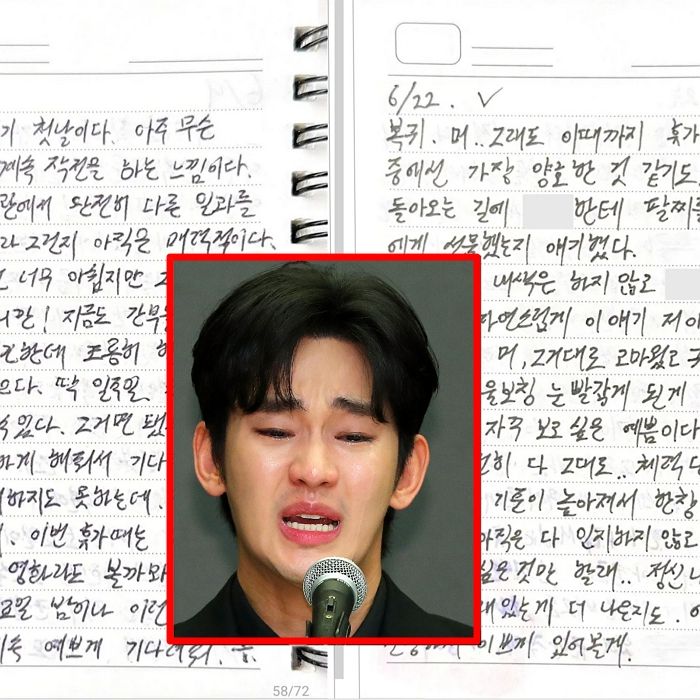 기 첫날이다. 아주 무슨
계속 작전을 하는 느낌이다.
란에서 완전히 다른 일과를
라 그런지 아직은 매력적이다.
너무 아쉽지만
니만! 지금도 간부
한데 조용히
다. 딱 일주일
있다. 그거면 됐
하게 해줘서 기다
하지도 못하는데.
이번 휴가때는
영화라도 볼까와
요일 밤이나 이런
속 예쁘게 기다려줘.
58/72
6/22. ✓
복귀. 머..그래도 이때까지 휴가
중에선 가장 양호한 것 같기도
돌아오는 길에 한테 팔찌를
에게 선물했는지 얘기했다.
내색은 하지 않고
자연스럽게 이 얘기 저 이
머, 그거대로 고마웠고
울보처럼 눈 빨갛게 된게
자꾸 보고싶은 예쁨이다
히 다 그대로.. 체력
기름이 높아져서 한창
아직은 다 인지하지 않고
싶은것만 할래.. 정신
있는게 더 나은지도.
이쁘게 있어볼게.